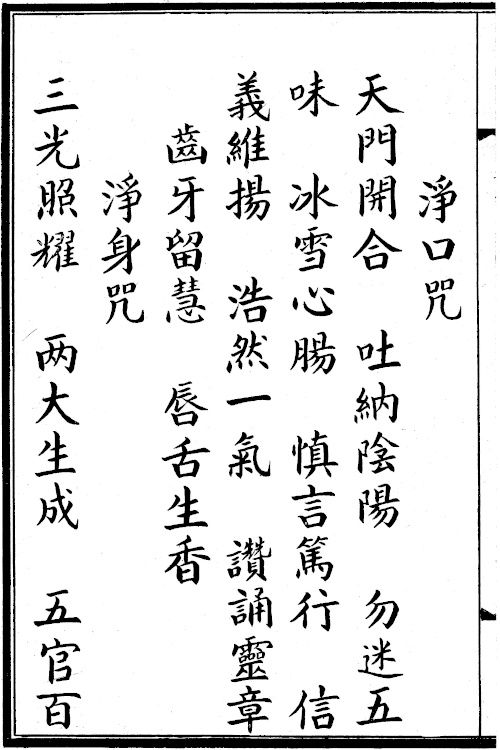 淨口咒
天門開合　吐納陰陽　勿迷五
味　冰雪心腸　慎言篤行　信
義維揚　浩然一氣　讚誦靈章
齒牙留慧　唇舌生香
淨身咒
三光照耀　两大生成　五官百